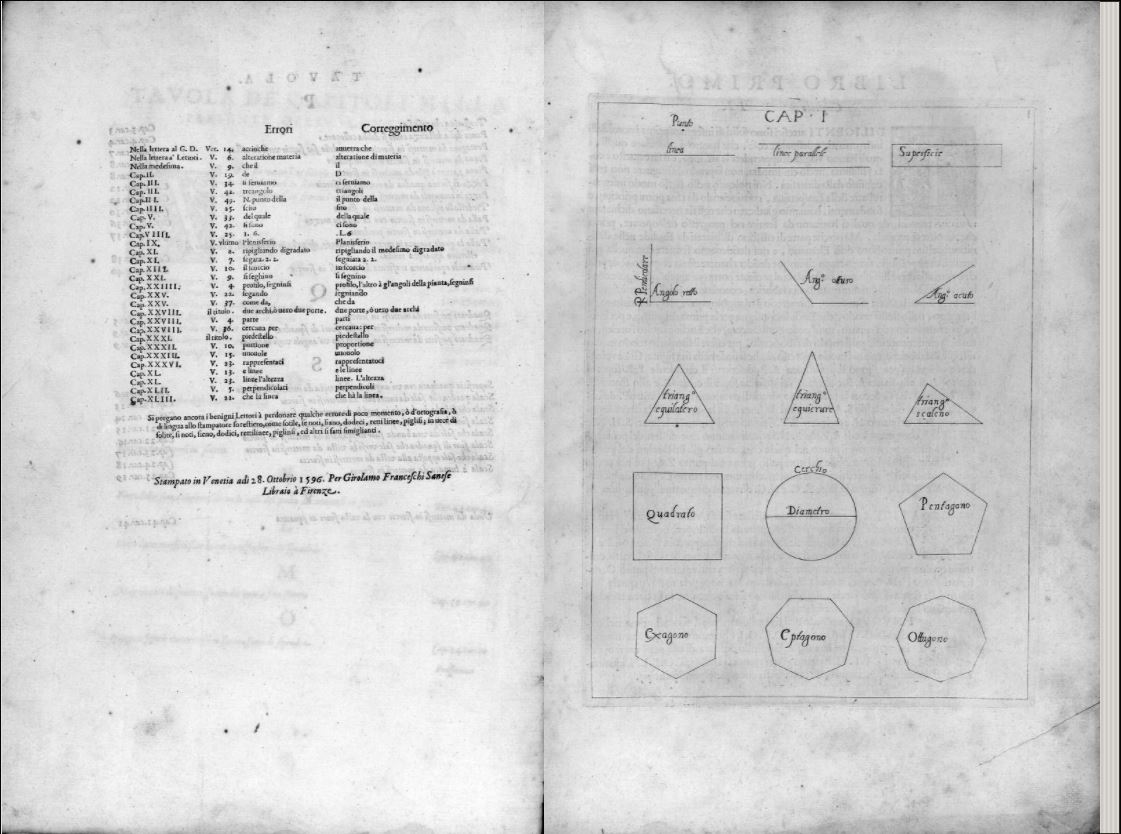 Errori Correggimento
Nella lettera al G. D. Ver. 14. acciòche
Nella lettera a' Lettori. V. 6. alteratione materia alteratione di materia
Nella medesima. V. 9. che il il
Cap. II. V. 19. de D
Cap. III. V. 34.
Cap. III. V. 42. treangolo triangoli
Cap. III. V. 49. N. punto della il punto della
Cap. IIII. V. 25. sito
Cap. V. V. 33. del quale della quale
Cap. V. V. 42. si sono ci sono
Cap. VIIII. V. 25. 1. 6. .L.6
Cap. IX. V. vltimo Planisferio
Cap. XI. V. 2. ripigliando digradato ripigliando il medesimo digradato
Cap. XI. V. 7. segata. 2. 2. segnata 2. 2.
Cap. XIII. V. 10. il scorcio in scorcio
Cap. XXI. V. 9. si seghino si segnino
Cap. XXIIII. V. 4. profilo, segninsi profilo, l'altro à gl'angoli della pianta, segninsi
Cap. XXV. V. 22. segando segniando
Cap. XXV. V. 37. come da, che da
Cap. XXVIII. il titulo. due archi, ò uero due porte. due porte, ò uero due archi
Cap. XXVIII. V. 4. parte parti
Cap. XXVIII. V. 36. cercana per cercana: per
Cap. XXXI. il titolo. piedestello piedestallo
Cap. XXXII. V. 10. portione proportione
Cap. XXXIII. V. 15.
Cap. XXXVI. V. 23. rappresentaci rappresentatoci
Cap. XL. V. 13. e linee e le linee
Cap. XL. V. 23. linee l'altezza linee. L'altezza
Cap. XLII. V. 5. perpendicolari perpendicoli
Cap. XLIII. V. 22. che la linea che hà la linea.
Si pregano ancora i benigni Lettori à perdonare qualche errore di poco momento, ò d'ortografia, ò
di lingua allo stampatore forestiero, come sotile, se noti, siano, dodeci, retti linee, piglisi; in uece di
sotile, si noti, sieno, dodici, rettilinee, piglinsi, ed altri si fatti simiglianti.
Stampato in Venetia adi 28. Ottobrio 1596. Per Girolamo Franceschi Sanese
Libraio à Firenze.
CAP. I
Punto
linea
linee parallele
Superficie
Perpendicolare
Angolo retto
Angº ottuso
Angº acuto
triangº
equilatero
triangº
equicrure
triangº
scaleno
Quadrato
Cerchio
Diametro
Pentagono
Exagono
Eptagono
Ottagono